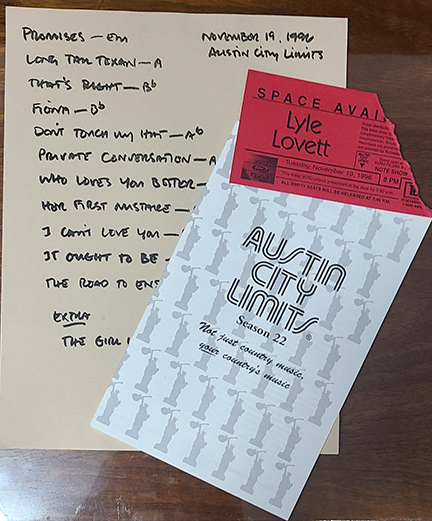 PROMISES — Em
NOVEMBER 19, 1996
AUSTIN CITY LIMITS
LONG TALL TEXAN — A
THAT'S RIGHT — Bb
FIONA — Bb
DON'T TOUCH MY HAT — Ab
PRIVATE CONVERSATION — A
WHO LOVES YOU BETTER —
HER FIRST MISTAKE —
I CAN'T LOVE YOU —
IT OUGHT TO BE —
THE ROAD TO ENS
EXTRA
THE GIRL I
SPACE AVAI
Lyle
Lovett
Tuesday, November 19, 1996
NOTE SHOW
8 PM
ALL EMPTY SEATS WILL BE RELEASED AT 7:45 P.M.
AUSTIN
CITY
LIMITS®
Season 22
Not just country music,
your country's music